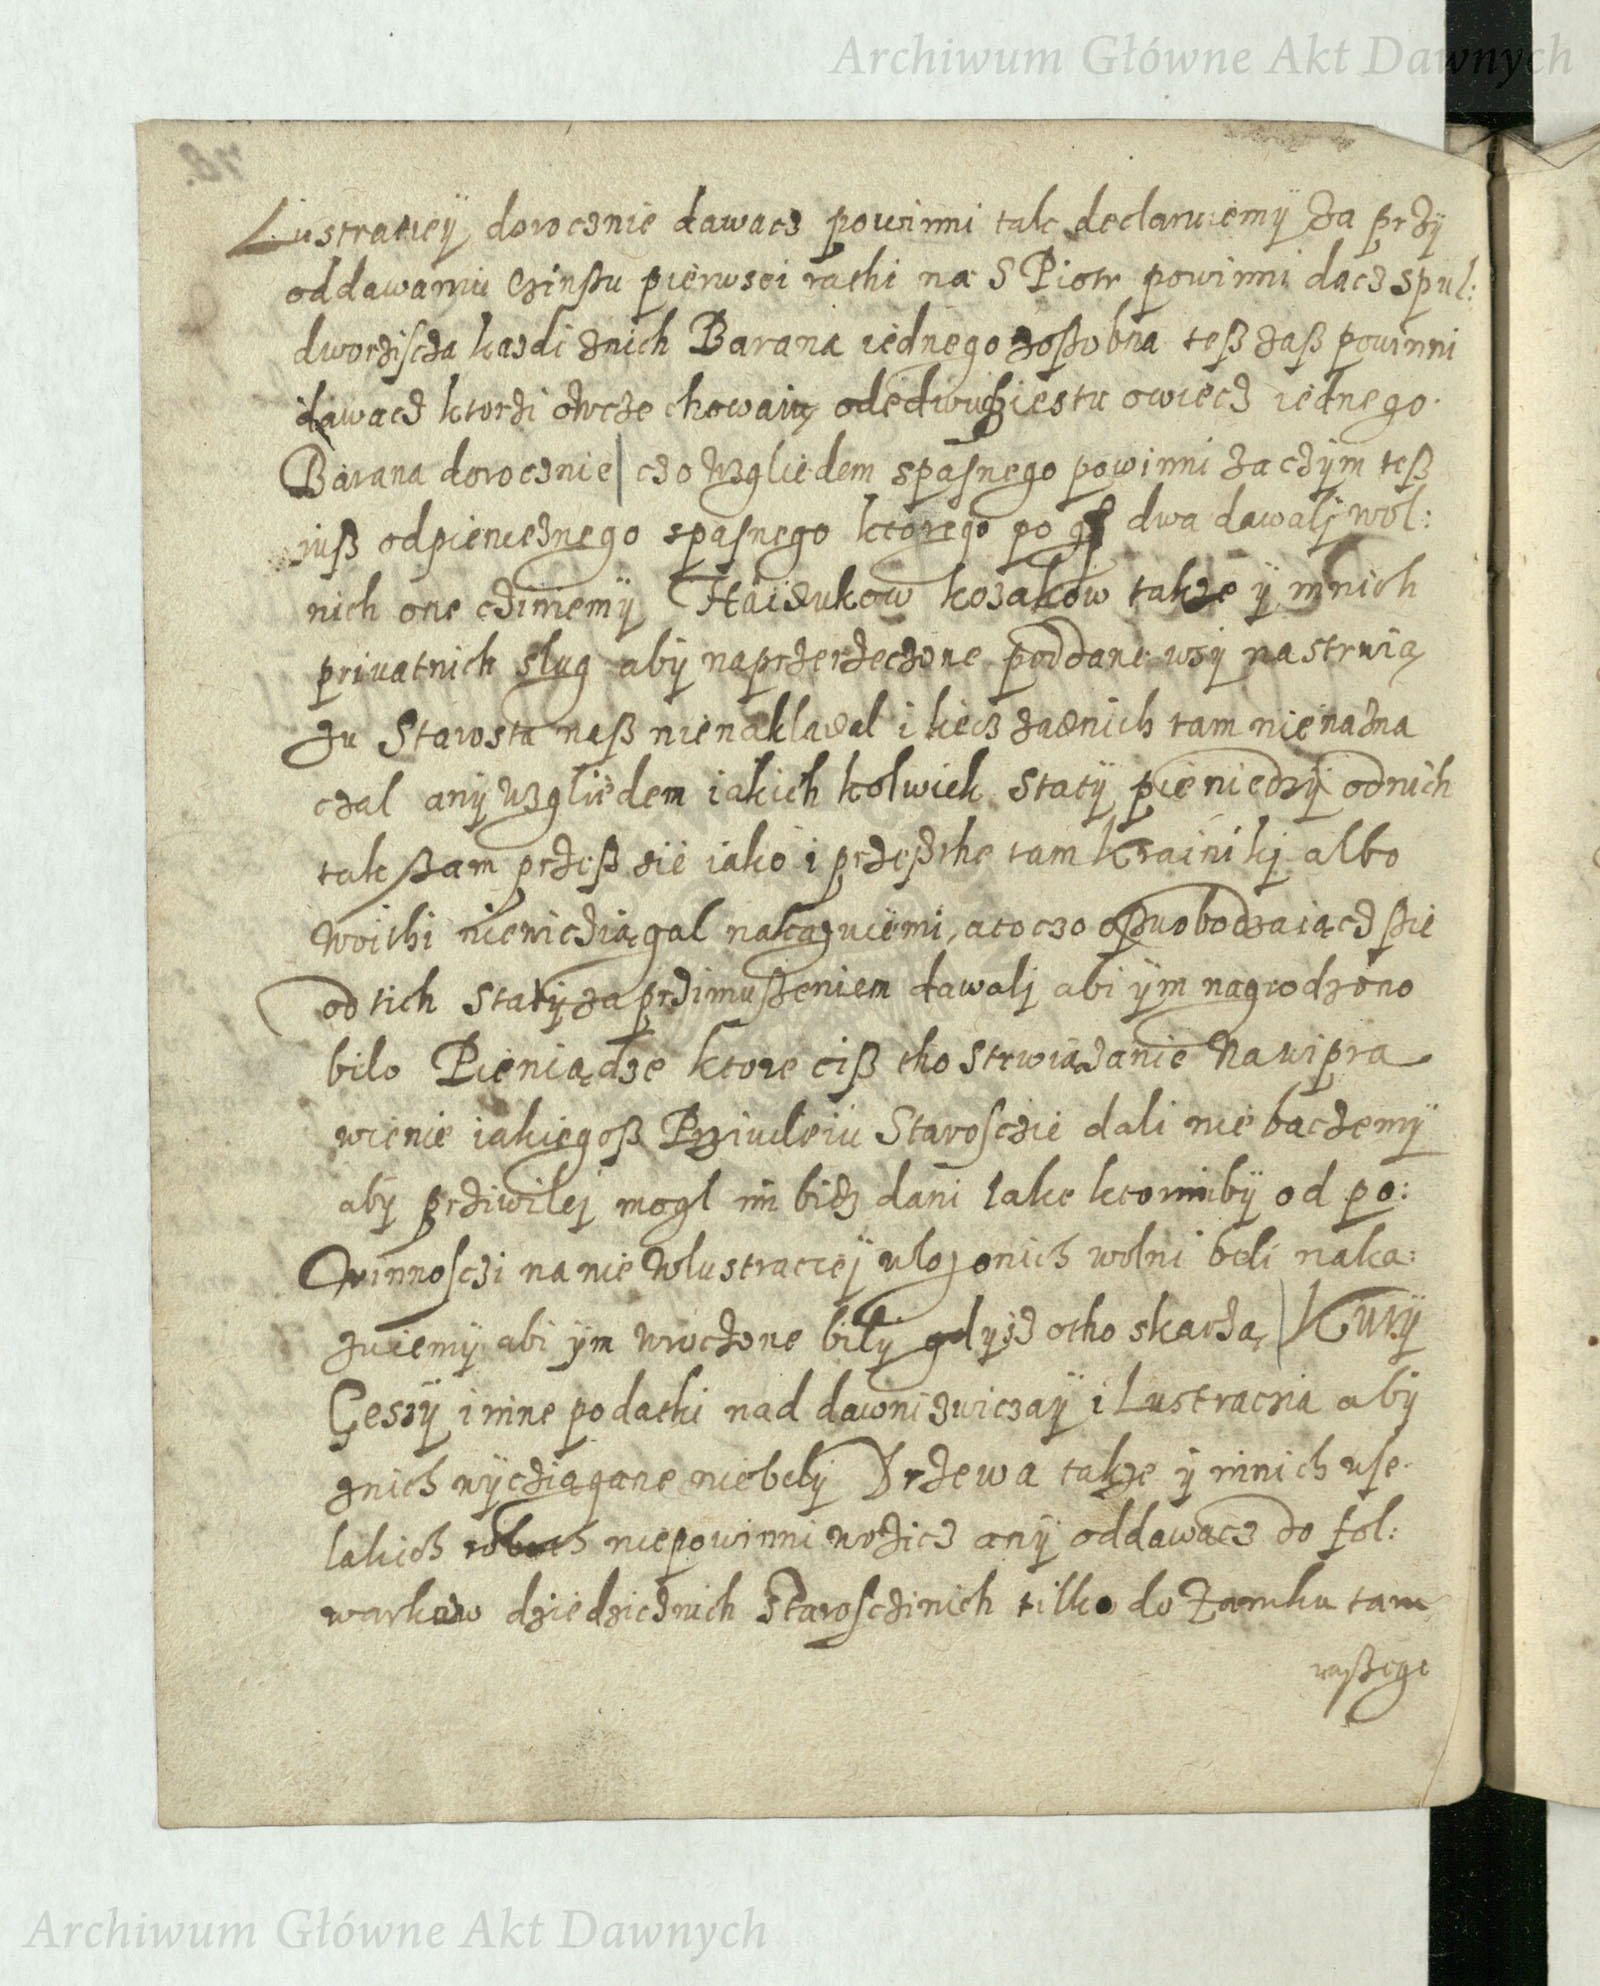 Archiwum Główne Akt Dawnych
78.
Lustracieÿ dorocznie dawacz powinni tak declaruiemÿ Za przÿ
oddawaniu czinßu pierwsei rathi na S Piotr powinni dacz spul:
dworziscza kazdi znich Barana iednego zoßobna teß zaß powinni
dawacz ktorzi owcze chowaią odedwudziestu owiecz iednego
Barana dorocznie | czo wzgliedem spasnego powinni zaczÿm teß
iuß odpienieznego spasnego ktorego po gr dwa dawali wol:
nich one czinimemÿ Haidukow kozakow takze ÿ innich
priuatnich slug abÿ naprzerzeczone poddane wsÿ nastrwią
zu Starosta naß nienakladal i liecz zadnich tam nienazna
czal anÿ wzgliedem iakich kolwiek statÿ pieniedzÿ odnich
tak ßam przeß sie iako i przeßthe tam Krainiki albo
woithi niewicziągal nakazuiemi, atoczo oßwobodzaiącz ßie
od tich statÿ za przimußeniem dawali abi ÿm nagrodzono
bilo Pieniądze ktore ciß tho strwiązanie Na wipra
wienie iakiegoß Prziuileiu Staroscie dali nie baczemÿ
abÿ prziwilej mogl im bidz dani iako ktorimbÿ od po:
winnosczi na nie wlustraciej ulozonich wolni beli naka:
zuiemÿ abi ÿm wroczone bilÿ gdÿsz otho skarzą | Kurÿ
Gęszÿ i inne podatki nad dawni zwiczaÿ i Lustracia abÿ
znich wÿcziągane niebelÿ Drzewa takze ÿ innich wse
lakich robot niepowinni wozicz anÿ oddawacz do fol:
warkow dziedzicznich Starosczinich tilko do Zamku tam
naßego
Archiwum Główne Akt Dawnych